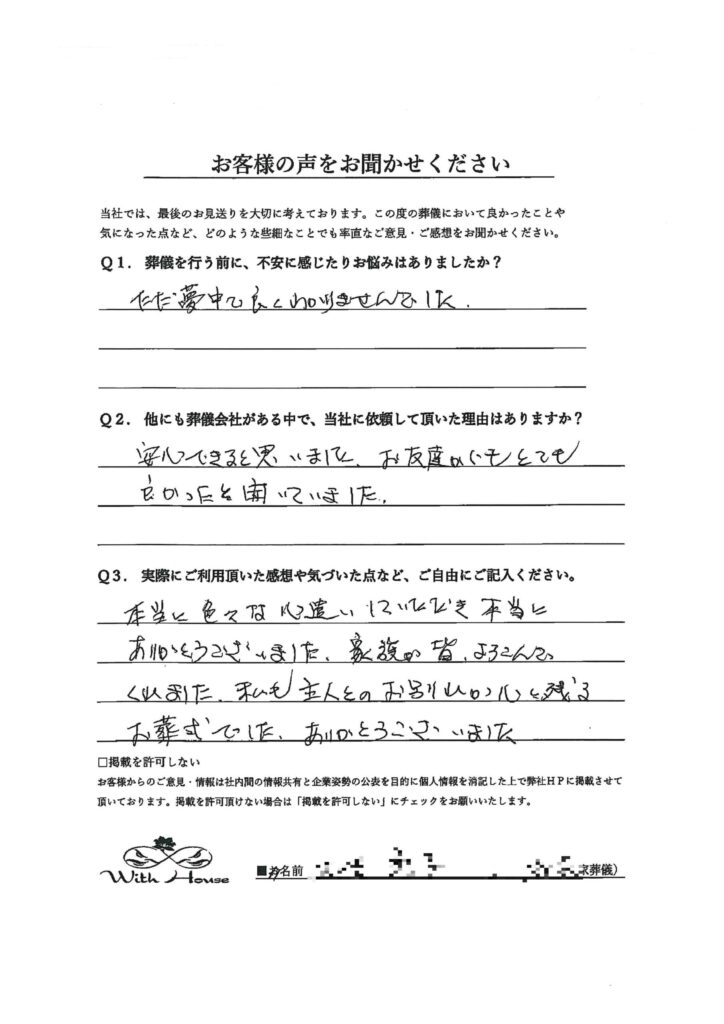 お客様の声をお聞かせください
当社では、最後のお見送りを大切に考えております。この度の葬儀において良かったことや
気になった点など、どのような些細なことでも率直なご意見・ご感想をお聞かせください。
Q1. 葬儀を行う前に、不安に感じたりお悩みはありましたか?
ただ夢中で良くわかりませんでした.
Q2. 他にも葬儀会社がある中で、当社に依頼して頂いた理由はありますか?
安心できると思いました、お友達からもとても
良かったと聞いていました.
Q3. 実際にご利用頂いた感想や気づいた点など、ご自由にご記入ください。
本当に色々な心遣いしていただき本当に
ありがとうございました、家族が皆、よろこんで
くれました、私も主人とのお別れが心に残る
お葬式でした、ありがとうございました
□掲載を許可しない
お客様からのご意見・情報は社内間の情報共有と企業姿勢の公表を目的に個人情報を消記した上で弊社HPに掲載させて
頂いております。掲載を許可頂けない場合は「掲載を許可しない」にチェックをお願いいたします。
With House
■お名前 家葬儀)